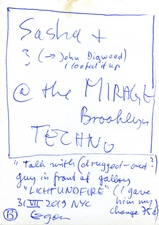 Sasha +
? (→ John Digweed)
I looked it up
@ the MIRAGE
Brooklyn
TECHNO
"Talk with (drugged-out?)
guy in front of gallery
"LICHTUNDFIRE" (I gave
him my
31 VII 2019 NYC change 75¢)
B